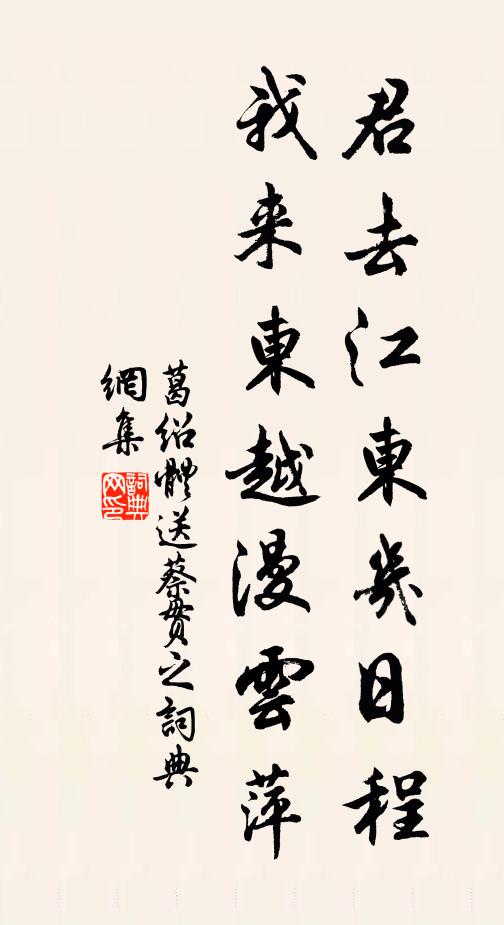 君去江東幾日程
我来東越漫雲萍
葛绍體送蔡貫之詞典
網集
詞典网印